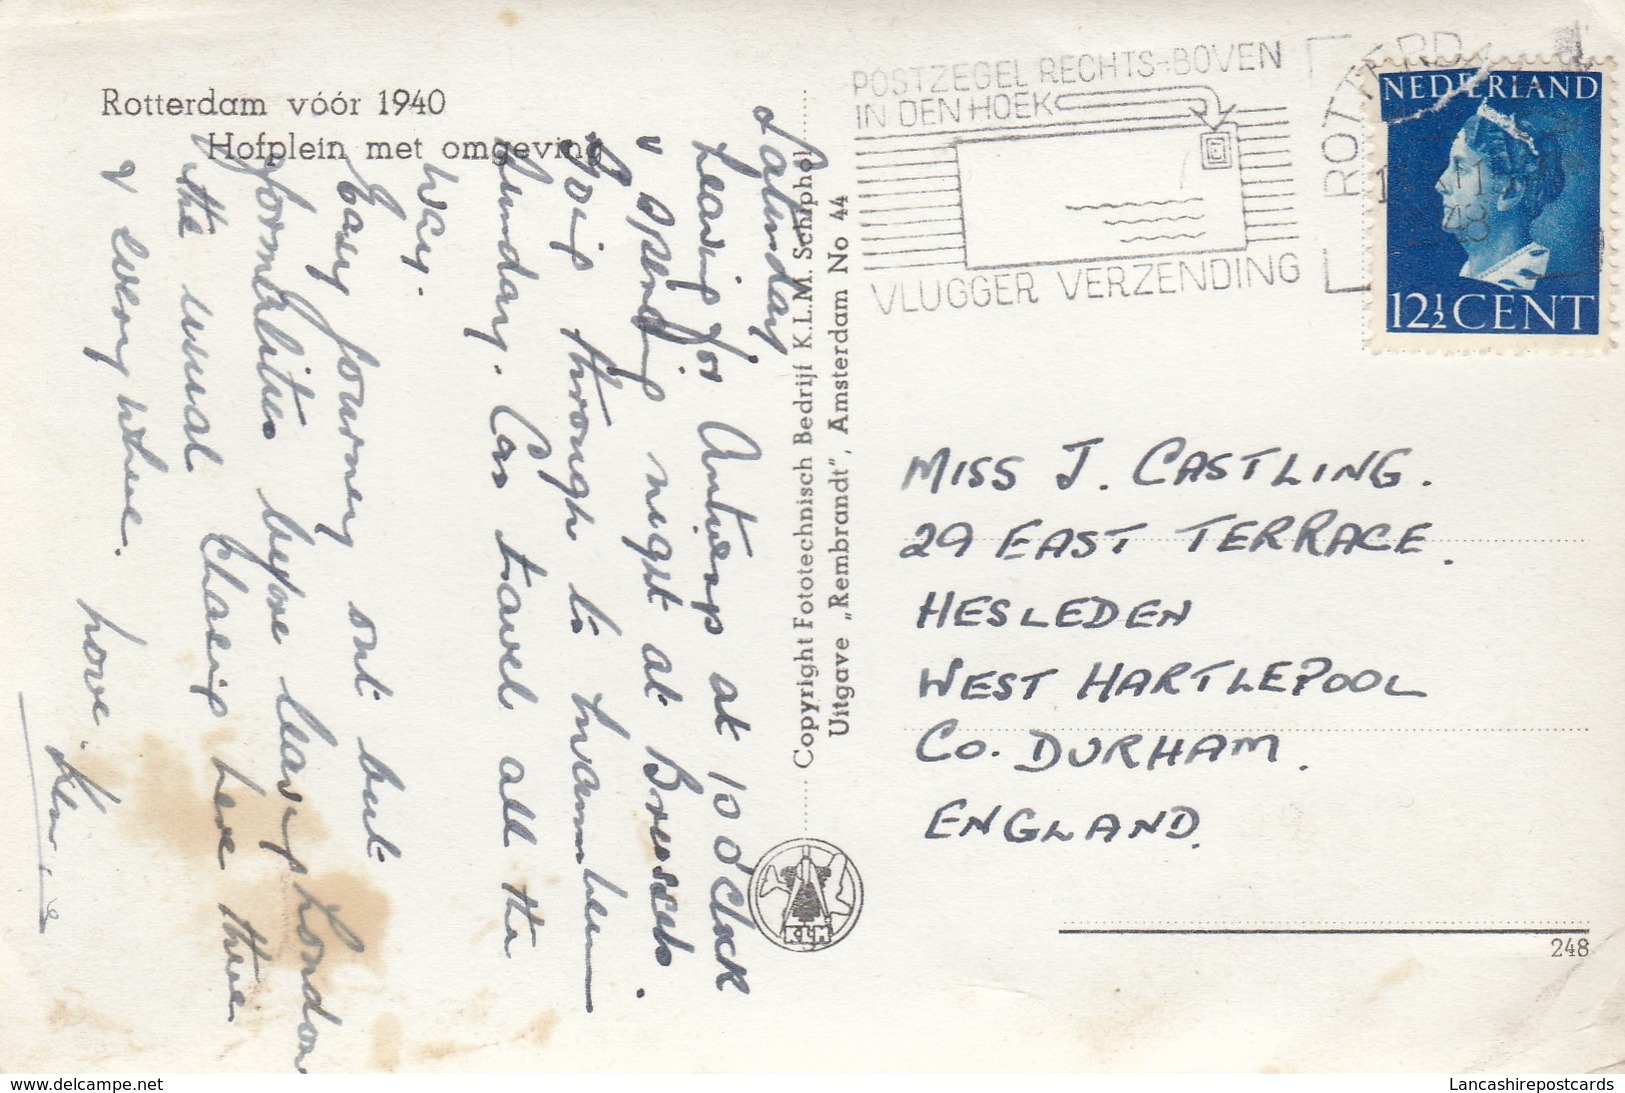 Rotterdam vóór 1940
Hofplein met omgeving
Saturday
Leaving for Antwerp at 10 O'Clock
& spending night at Brussels.
Going through to
Sunday. Car travel all the
way.
Easy journey out but
formalities before leaving London
the usual chasing here there
& everywhere.
Love.
Copyright Fototechnisch Bedrijf K.L.M. Schiphol
Uitgave „Rembrandt", Amsterdam No 44
KLM
POSTZEGEL RECHTS-BOVEN
IN DEN HOEK
VLUGGER VERZENDING
ROTTERD
48
NEDERLAND
12½ CENT
MISS J. CASTLING.
29 EAST TERRACE.
HESLEDEN
WEST HARTLEPOOL
CO. DURHAM.
ENGLAND.
248
www.delcampe.net
Lancashirepostcards